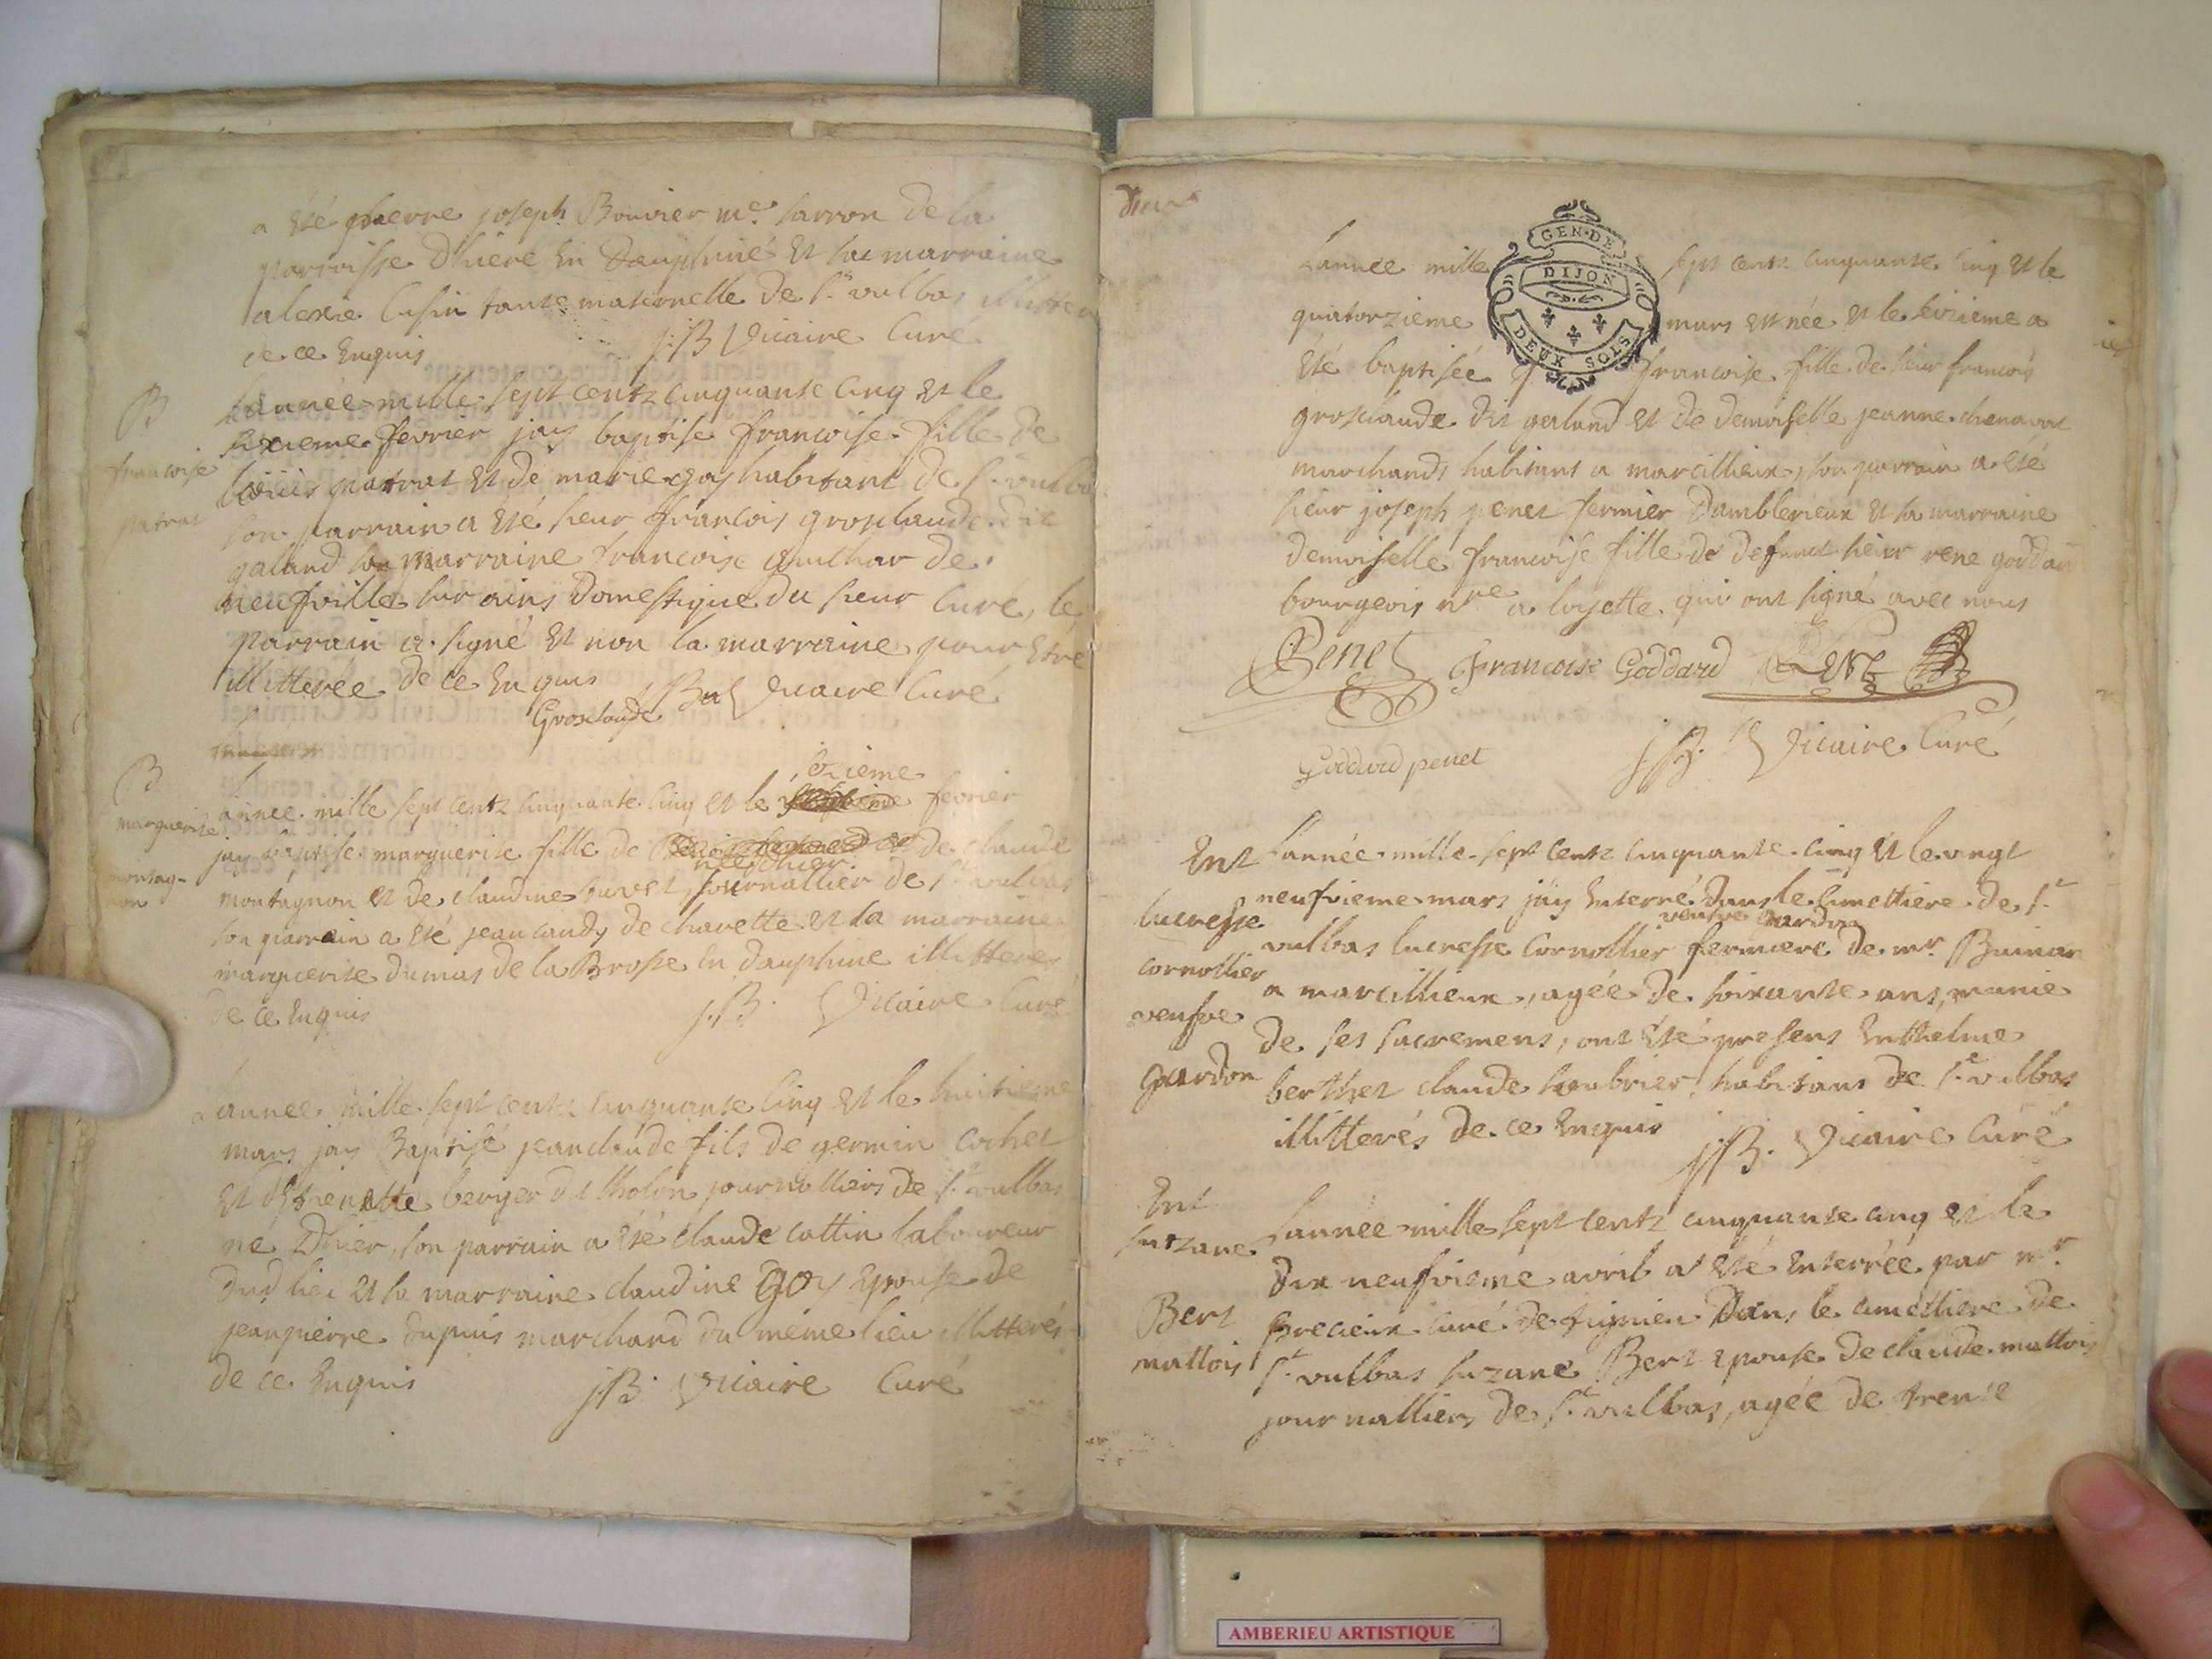 a été pierre joseph Bouvier me. sarron de la
parroisse Dhiere En Dauphiné Et sa marraine
alexie Cusin tante maternelle de St. vulbas illitteres
de ce Enquis J:B Vicaire Curé
B
L'année mille sept centz cinquante cinq et le
sixieme fevrier jay baptisé francoise fille de
francoise
patras
Louis patras et de marie goy habitant de St. vulbas
son parrain a été sieur francois grosclaude dit
galand sa marraine francoise guilhar de
neufville sur ains Domestique du sieur Curé, le
parrain a signé et non la marraine pour Etre
illitterée de ce Enquis J Bal Vicaire Curé
Grosclaude
B
onzieme
L'année mille sept centz cinquante cinq et le fevrier
marguerite
jay baptisé marguerite fille de de claude
née Dhier
montag-
non
montagnon et de claudine buvet journallier de St. vulbas
son parrain a été jean de charette et la marraine
marguerite dumas de la Brosse En dauphine illitteres
de ce Enquis J.B. Vicaire Curé
L'année mille sept centz cinquante cinq et le huitieme
mars jay Baptisé jean claude fils de germin cochet
et destienette berger dit tholon journalliers de St. vulbas
né Dhier, son parrain a été claude cottin laboureur
dud lieu et la marraine claudine goy epouse de
jean pierre dupuis marchand du même lieu illitterés
de ce Enquis J.B. Vicaire Curé
L'année mille sept centz cinquante cinq et le
GEN. DE
DIJON
DEUX SOLS
quatorzieme mars est née et le seizieme a
été baptisée francoise fille de sieur francois
grosclaude dit galand et de demoiselle jeanne chenavat
marchands habitans a marcillieux, son parrain a été
sieur joseph penet fermier Damblerieux et sa marraine
demoiselle francoise fille de defunct sieur rene goddard
bourgeois nre a loyette qui ont signé avec nous
Penet Francoise Goddard
Goddard penet J.B. Vicaire Curé
Ent
L'année mille sept centz cinquante cinq et le vingt
neufvieme mars jay Enterré dans le cimettiere de St.
veufve Gardon
lucresse
cornollier
veufve
gardon
vulbas lucresse Cornollier fermiere de mr. Buinan
a marcillieux, agée de soixante ans, munie
de ses sacremens, ont été presens Enthelme
berthet claude habitans de St. vulbas
illitterés de ce Enquis J.B. Vicaire Curé
Ent
suzane
Bert
mallois
L'année mille sept centz cinquante cinq et le
dix neufvieme avril a été Enterrée par mr.
precieux curé de tignieu Dans le cimettiere de
St. vulbas suzane Bert epouse de claude mallois
journalliers de St. vulbas, agée de trente
AMBERIEU ARTISTIQUE